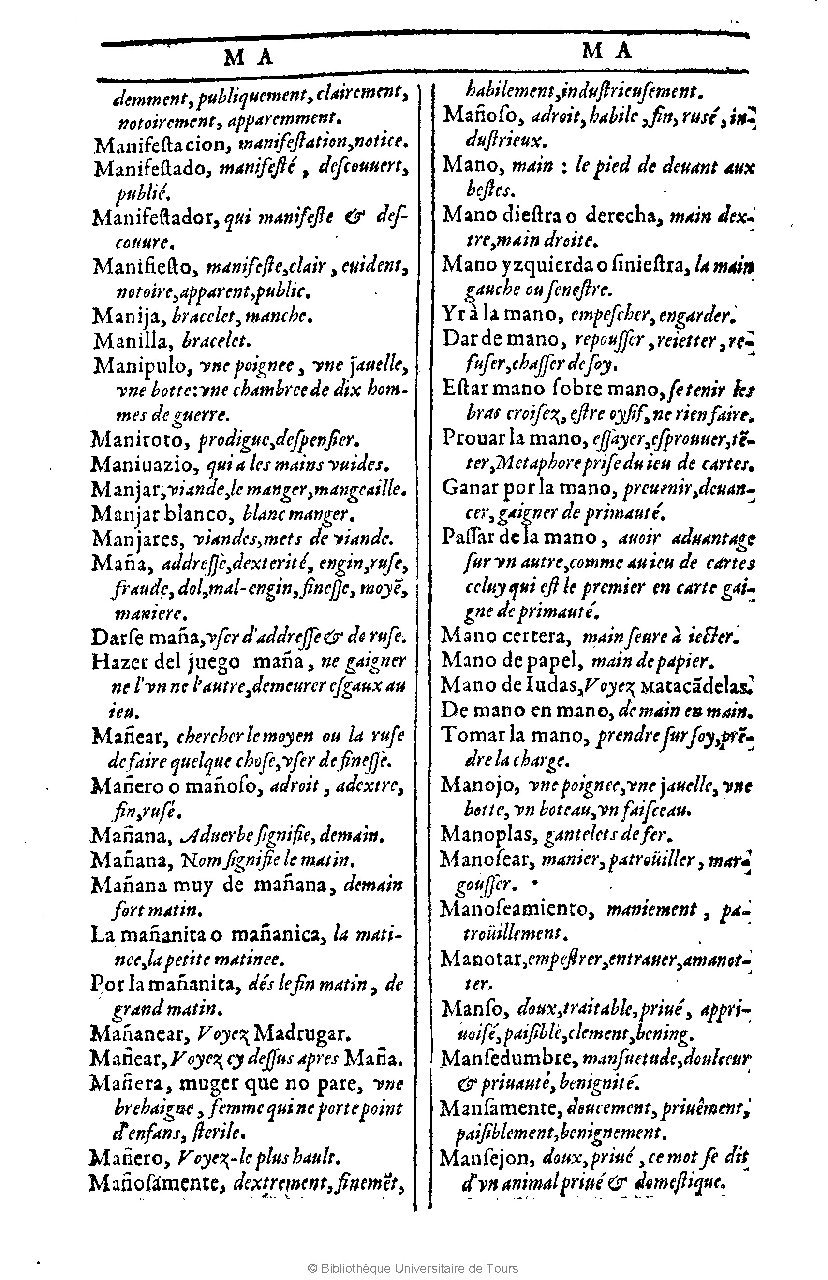 M A
demment, publiquement, clairement,
notoirement, apparemment.
Manifeſtacion, manifeſtation, notice.
Manifeſtado, manifeſté, deſcouuert,
publié.
Manifeſtador, qui manifeſte & deſ-
couure.
Manifieſto, manifeſte, clair, euident,
notoire, apparent, public.
Manija, bracelet, manche.
Manilla, bracelet.
Manipulo, vne poignee, vne jauelle,
vne botte: vne chambree de dix hom-
mes de guerre.
Maniroto, prodigue, deſpenſier.
Maniuazio, qui a les mains vuides.
Manjar, viande, le manger, mangeaille.
Manjar blanco, blanc manger.
Manjares, viandes, mets de viande.
Maña, addreſſe, dexterité, engin, ruſe,
fraude, dol, mal-engin, fineſſe, moyẽ,
maniere.
Darſe maña, vſer d'addreſſe & de ruſe.
Hazer del juego maña, ne gaigner
ne l'vn ne l'autre, demeurer eſgaux au
ieu.
Mañear, chercher le moyen ou la ruſe
de faire quelque choſe, vſer de fineſſe.
Mañero o mañoſo, adroit, adextre,
fin, ruſé.
Mañana, Aduerbe ſignifie, demain.
Mañana, Nom ſignifie le matin.
Mañana muy de mañana, demain
fort matin.
La mañanita o mañanica, la mati-
nee, la petite matinee.
Por la mañanita, dés le fin matin, de
grand matin.
Mañanear, Voyez Madrugar.
Mañear, Voyez cy deſſus apres Maña.
Mañera, muger que no pare, vne
brehaigne, femme qui ne porte point
d'enfans, ſterile.
Mañero, Voyez-le plus hault.
Mañoſamente, dextrement, finemẽt,
M A
habilement, induſtrieuſement.
Mañoſo, adroit, habile, fin, ruſé, in-
duſtrieux.
Mano, main : le pied de deuant aux
beſtes.
Mano dieſtra o derecha, main dex-
tre, main droite.
Mano yzquierda o ſinieſtra, la main
gauche ou feneſtre.
Yr à la mano, empeſcher, engarder.
Dar de mano, repouſſer, reietter, re-
fuſer, chaſſer de ſoy.
Eſtar mano ſobre mano, ſe tenir les
bras croiſez, eſtre oyſif, ne rien faire.
Prouar la mano, eſſayer, eſprouuer, tẽ-
ter, Metaphore priſe du ieu de cartes.
Ganar por la mano, preuenir, deuan-
cer, gaigner de primauté.
Paſſar de la mano, auoir aduantage
ſur vn autre, comme au ieu de cartes
celuy qui eſt le premier en carte gai-
gne de primauté.
Mano certera, main ſeure à iecter.
Mano de papel, main de papier.
Mano de Iudas, Voyez Matacãdelas.
De mano en mano, de main en main.
Tomar la mano, prendre ſur ſoy, prẽ-
dre la charge.
Manojo, vne poignee, vne jauelle, vne
botte, vn boteau, vn faiſceau.
Manoplas, gantelets de fer.
Manoſear, manier, patroüiller, mar-
gouſſer.
Manoſeamiento, maniement, pa-
troüillement.
Manotar, empeſtrer, entrauer, amanot-
ter.
Manſo, doux, traitable, priué, appri-
uoiſé, paiſible, clement, bening.
Manſedumbre, manſuetude, douleeur
& priuauté, benignité.
Manſamente, doucement, priuêment,
paiſiblement, benignement.
Manſejon, doux, priué, ce mot ſe dit
d'vn animal priué & domeſtique.
© Bibliothèque Universitaire de Tours